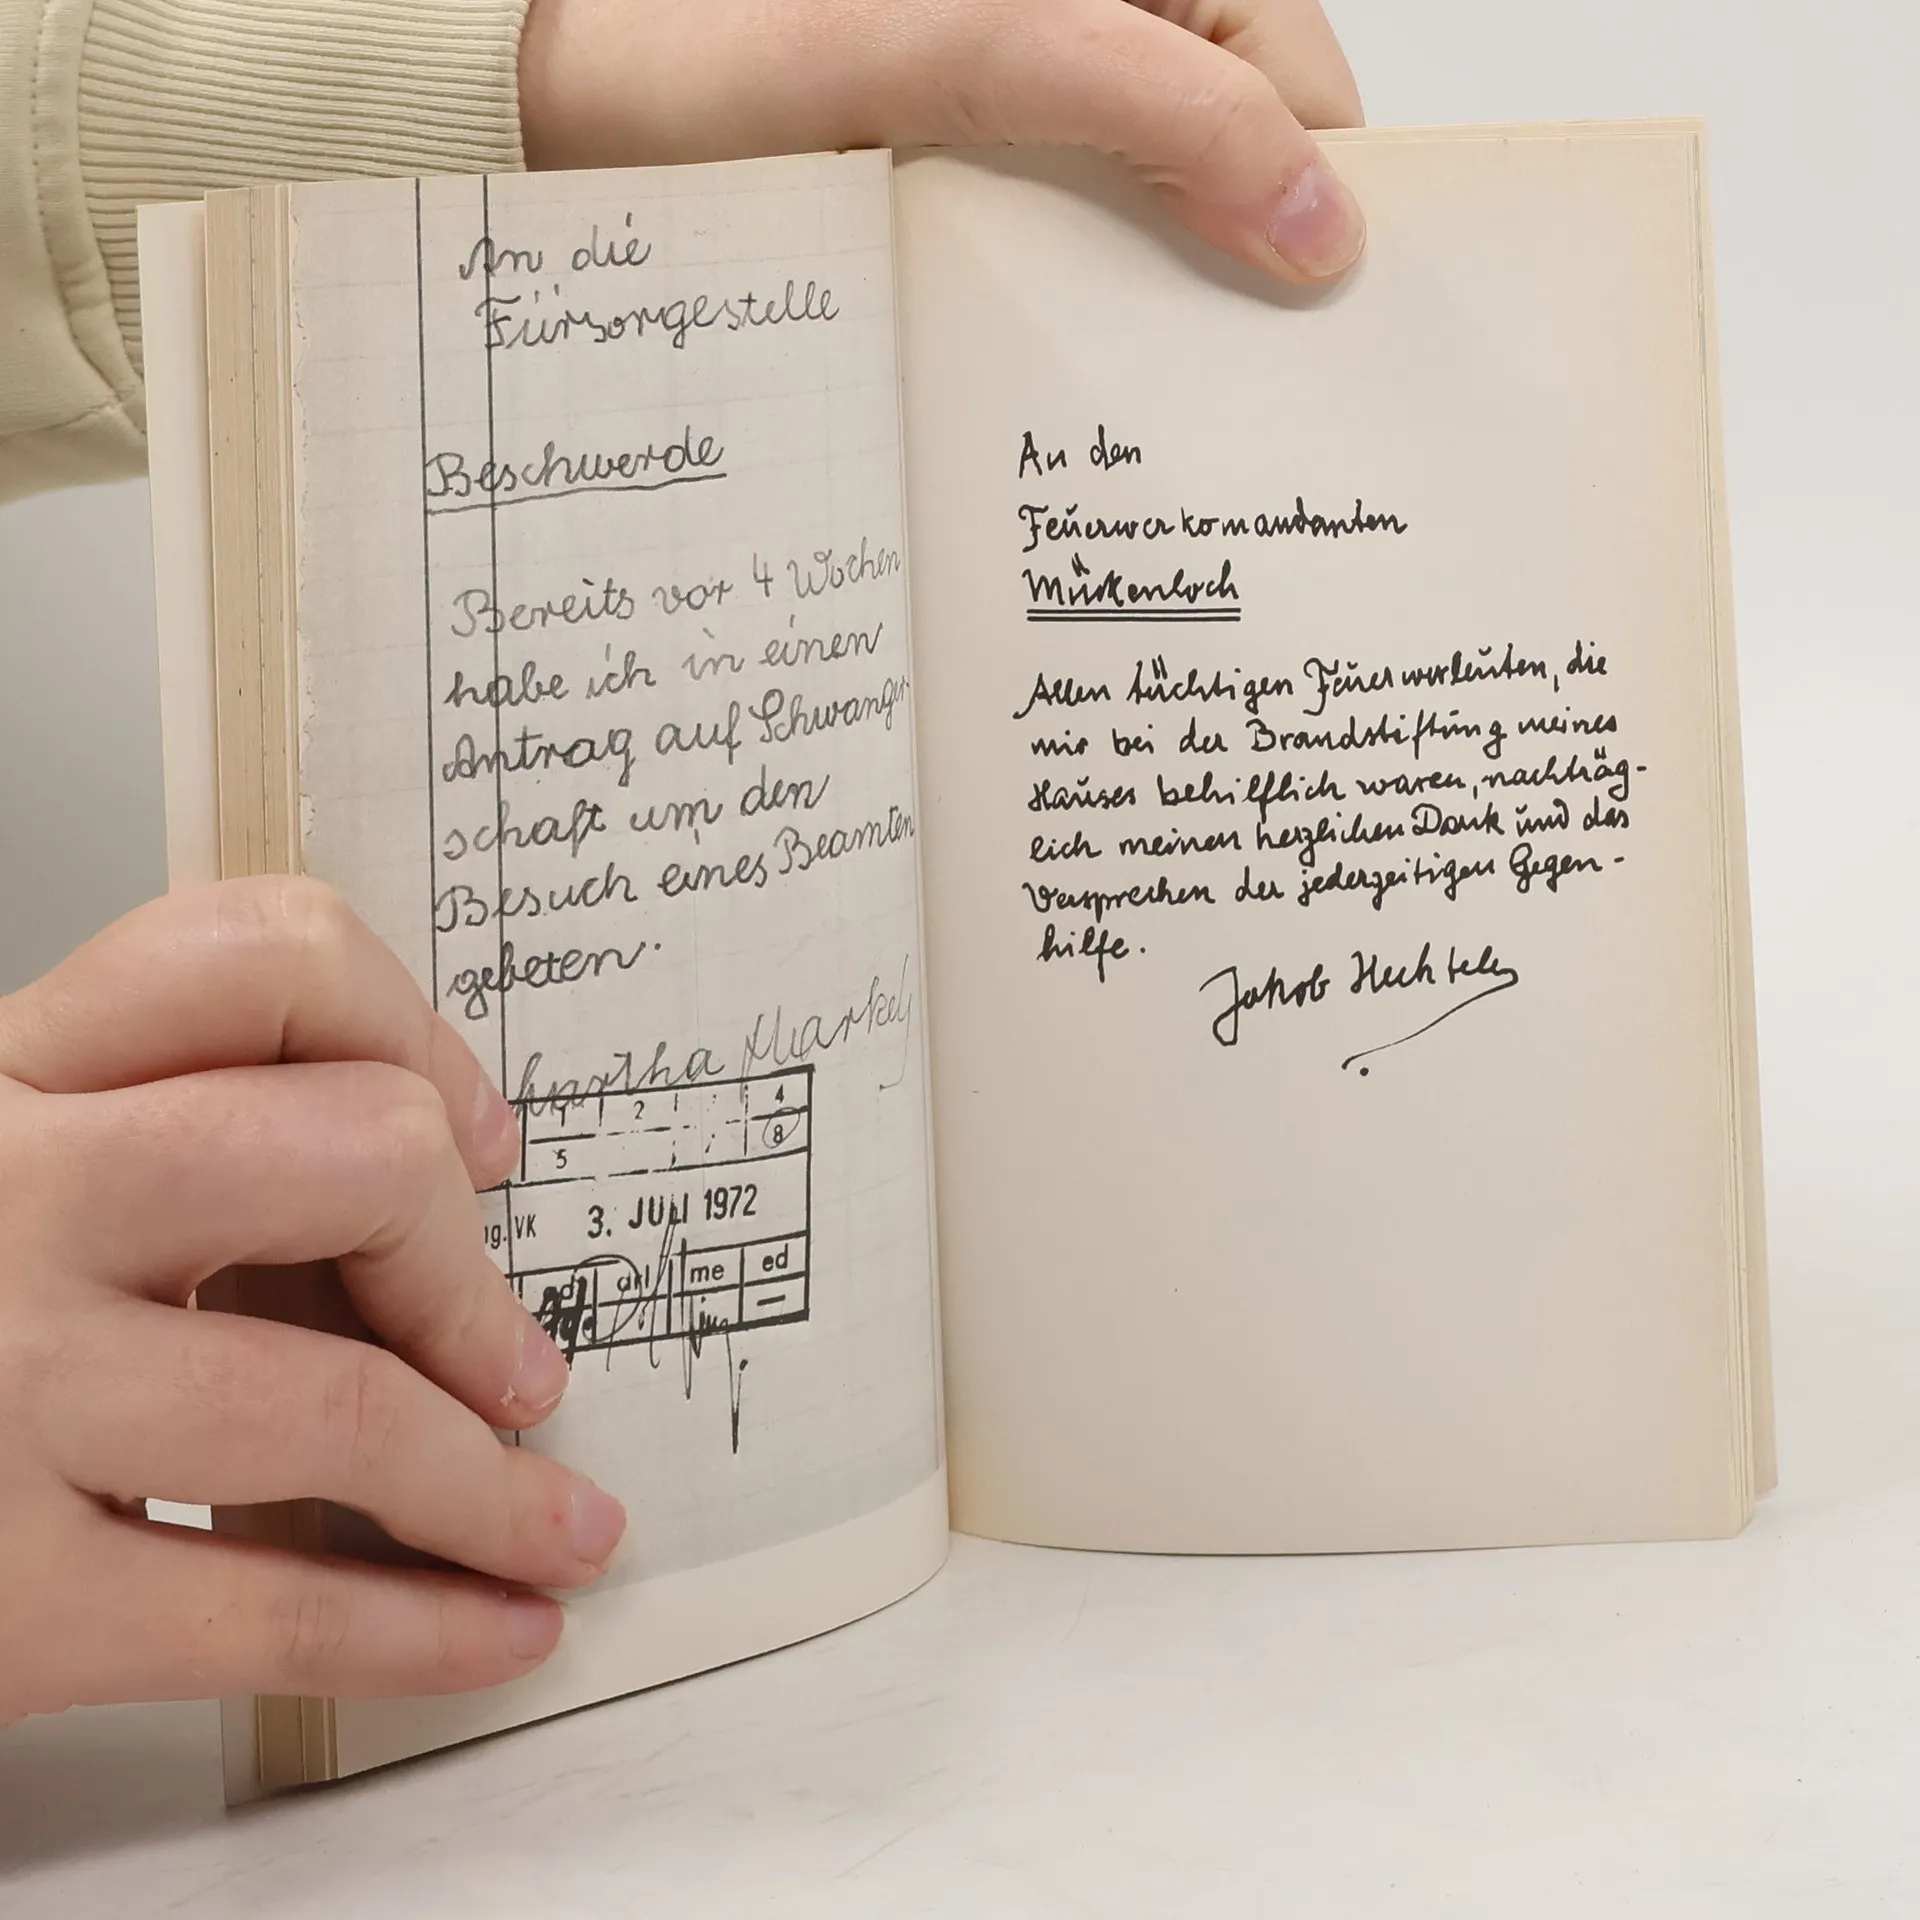 An die
Fürsorgestelle
Beschwerde
Bereits vor 4 Wochen
habe ich in einen
Antrag auf Schwanger-
schaft um den
Besuch eines Beamten
gebeten.
1 2 4
5 8
VK 3. JULI 1972
me ed
An den
Feuerwerkomandanten
Mückenloch
Allen tüchtigen Feuerwerleuten, die
mir bei der Brandstiftung meines
Hauses behilflich waren, nachträg-
lich meinen herzlichen Dank und das
Versprechen der jederzeitigen Gegen-
hilfe.
Jakob